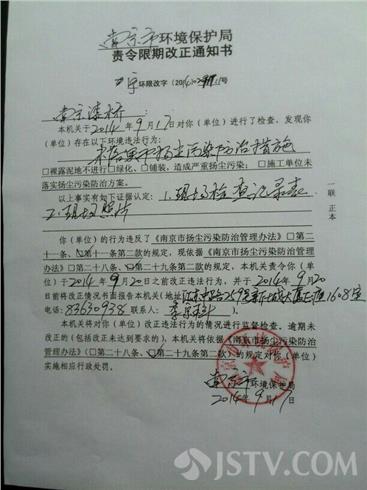 南京市环境保护局
责令限期改正通知书
宁环限改字(2014)
南京漆桥
本机关于2014年9月17日对你(单位)进行了检查,发现你
(单位)存在以下环境违法行为:
未落实扬尘污染防治措施
□裸露泥地不进行□绿化、□铺装,造成严重扬尘污染;□施工单位未
落实扬尘污染防治方案。
以上事实有如下证据认定:1、现场检查记录表
2、现场照片
你(单位)的行为违反了《南京市扬尘污染防治管理办法》(□第二
十一条、第十一条第二款的规定,现依据《南京市扬尘污染防治管理
办法》□第二十八条、第二十九条第二款的规定。本机关责令你(单
位)于2014年9月20日之前改正违法行为,并于2014年9月20
日前将改正情况书面报告本机关(地址 江东中路259号 1608室
电话:83630938 联系人:
本机关将对你(单位)改正违法行为的情况进行监督检查,逾期未
改正的(包括改正未达到要求的),本机关将依据《南京市扬尘污染防治
管理办法》(□第二十八条、第二十九条第二款)的规定对你(单位)
实施相应行政处罚。
南京市环境保护局
2014年9月17日
一联正本
JSTV.COM